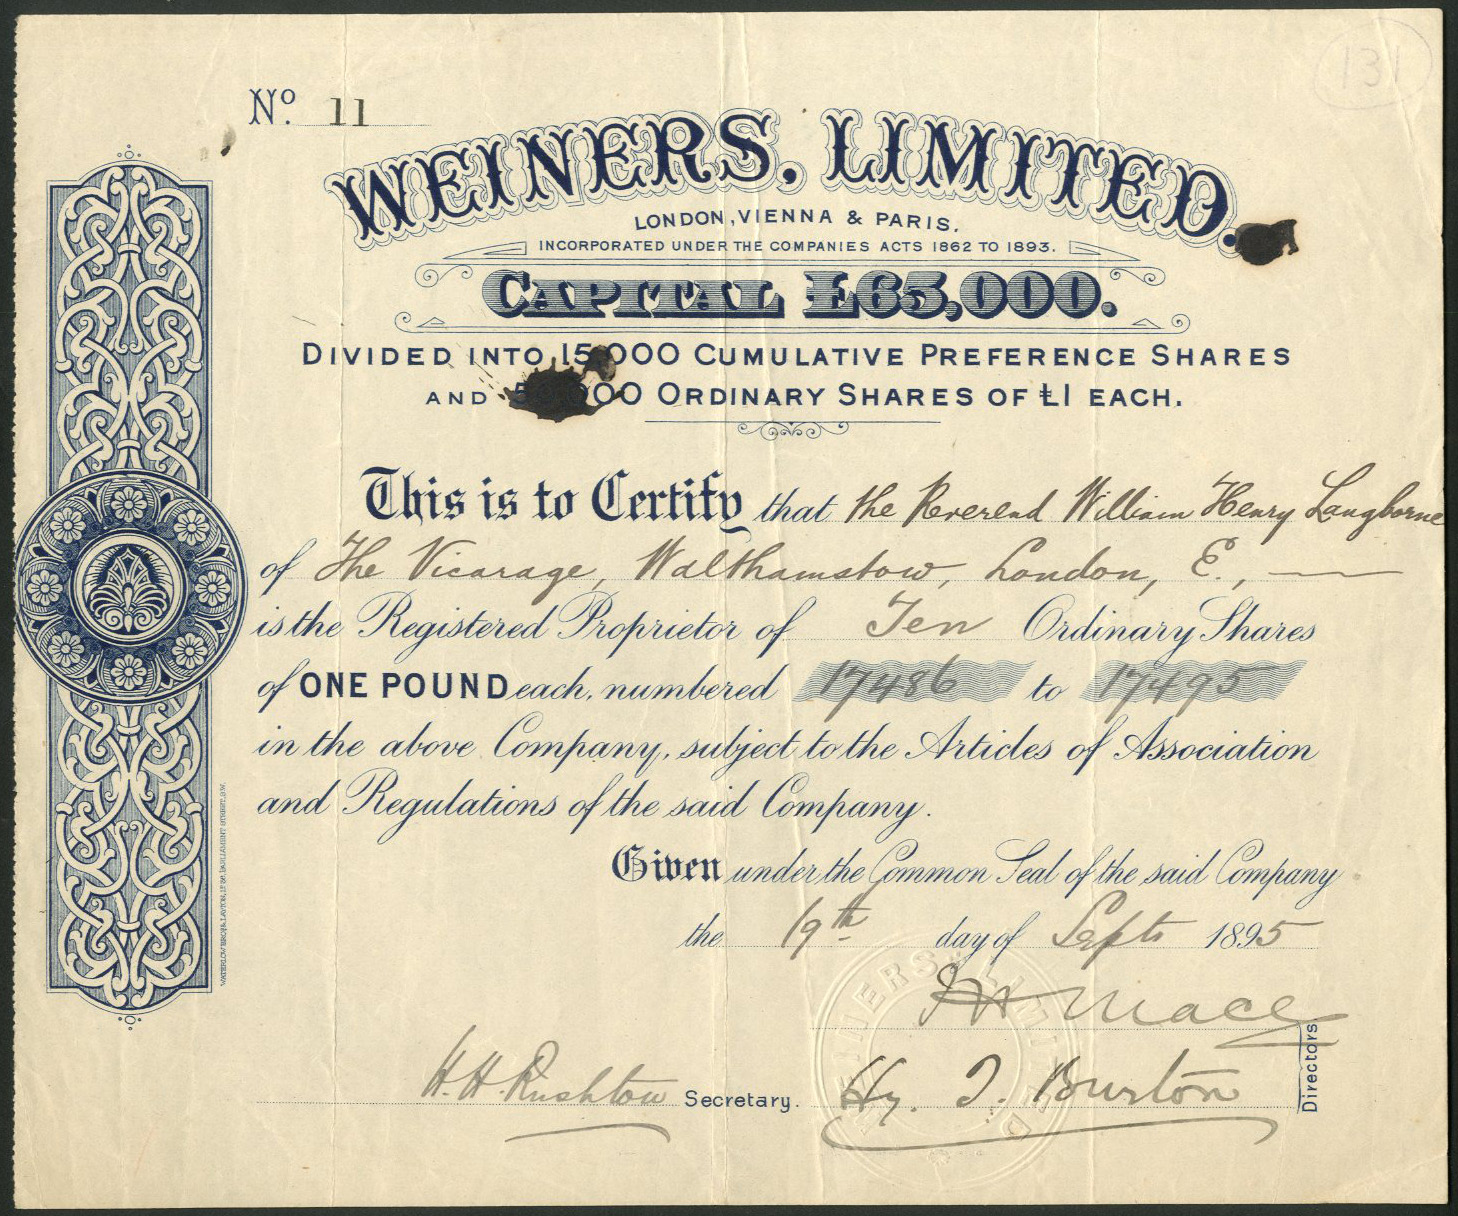 131
No. 11
WEINERS, LIMITED.
LONDON, VIENNA & PARIS.
INCORPORATED UNDER THE COMPANIES ACTS 1862 TO 1893.
CAPITAL £65,000.
DIVIDED INTO 15,000 CUMULATIVE PREFERENCE SHARES
AND ORDINARY SHARES OF £1 EACH.
This is to Certify that the Reverend William Henry Langborne
of The Vicarage, Walthamstow, London, E.,
is the Registered Proprietor of Ten Ordinary Shares
of ONE POUND each, numbered 17486 to 17495
in the above Company, subject to the Articles of Association
and Regulations of the said Company.
Given under the Common Seal of the said Company
the 19th day of Septr 1895
Mace
H. H. Rushton Secretary. Hy. J. Burton
Directors
WEINERS LIMITED